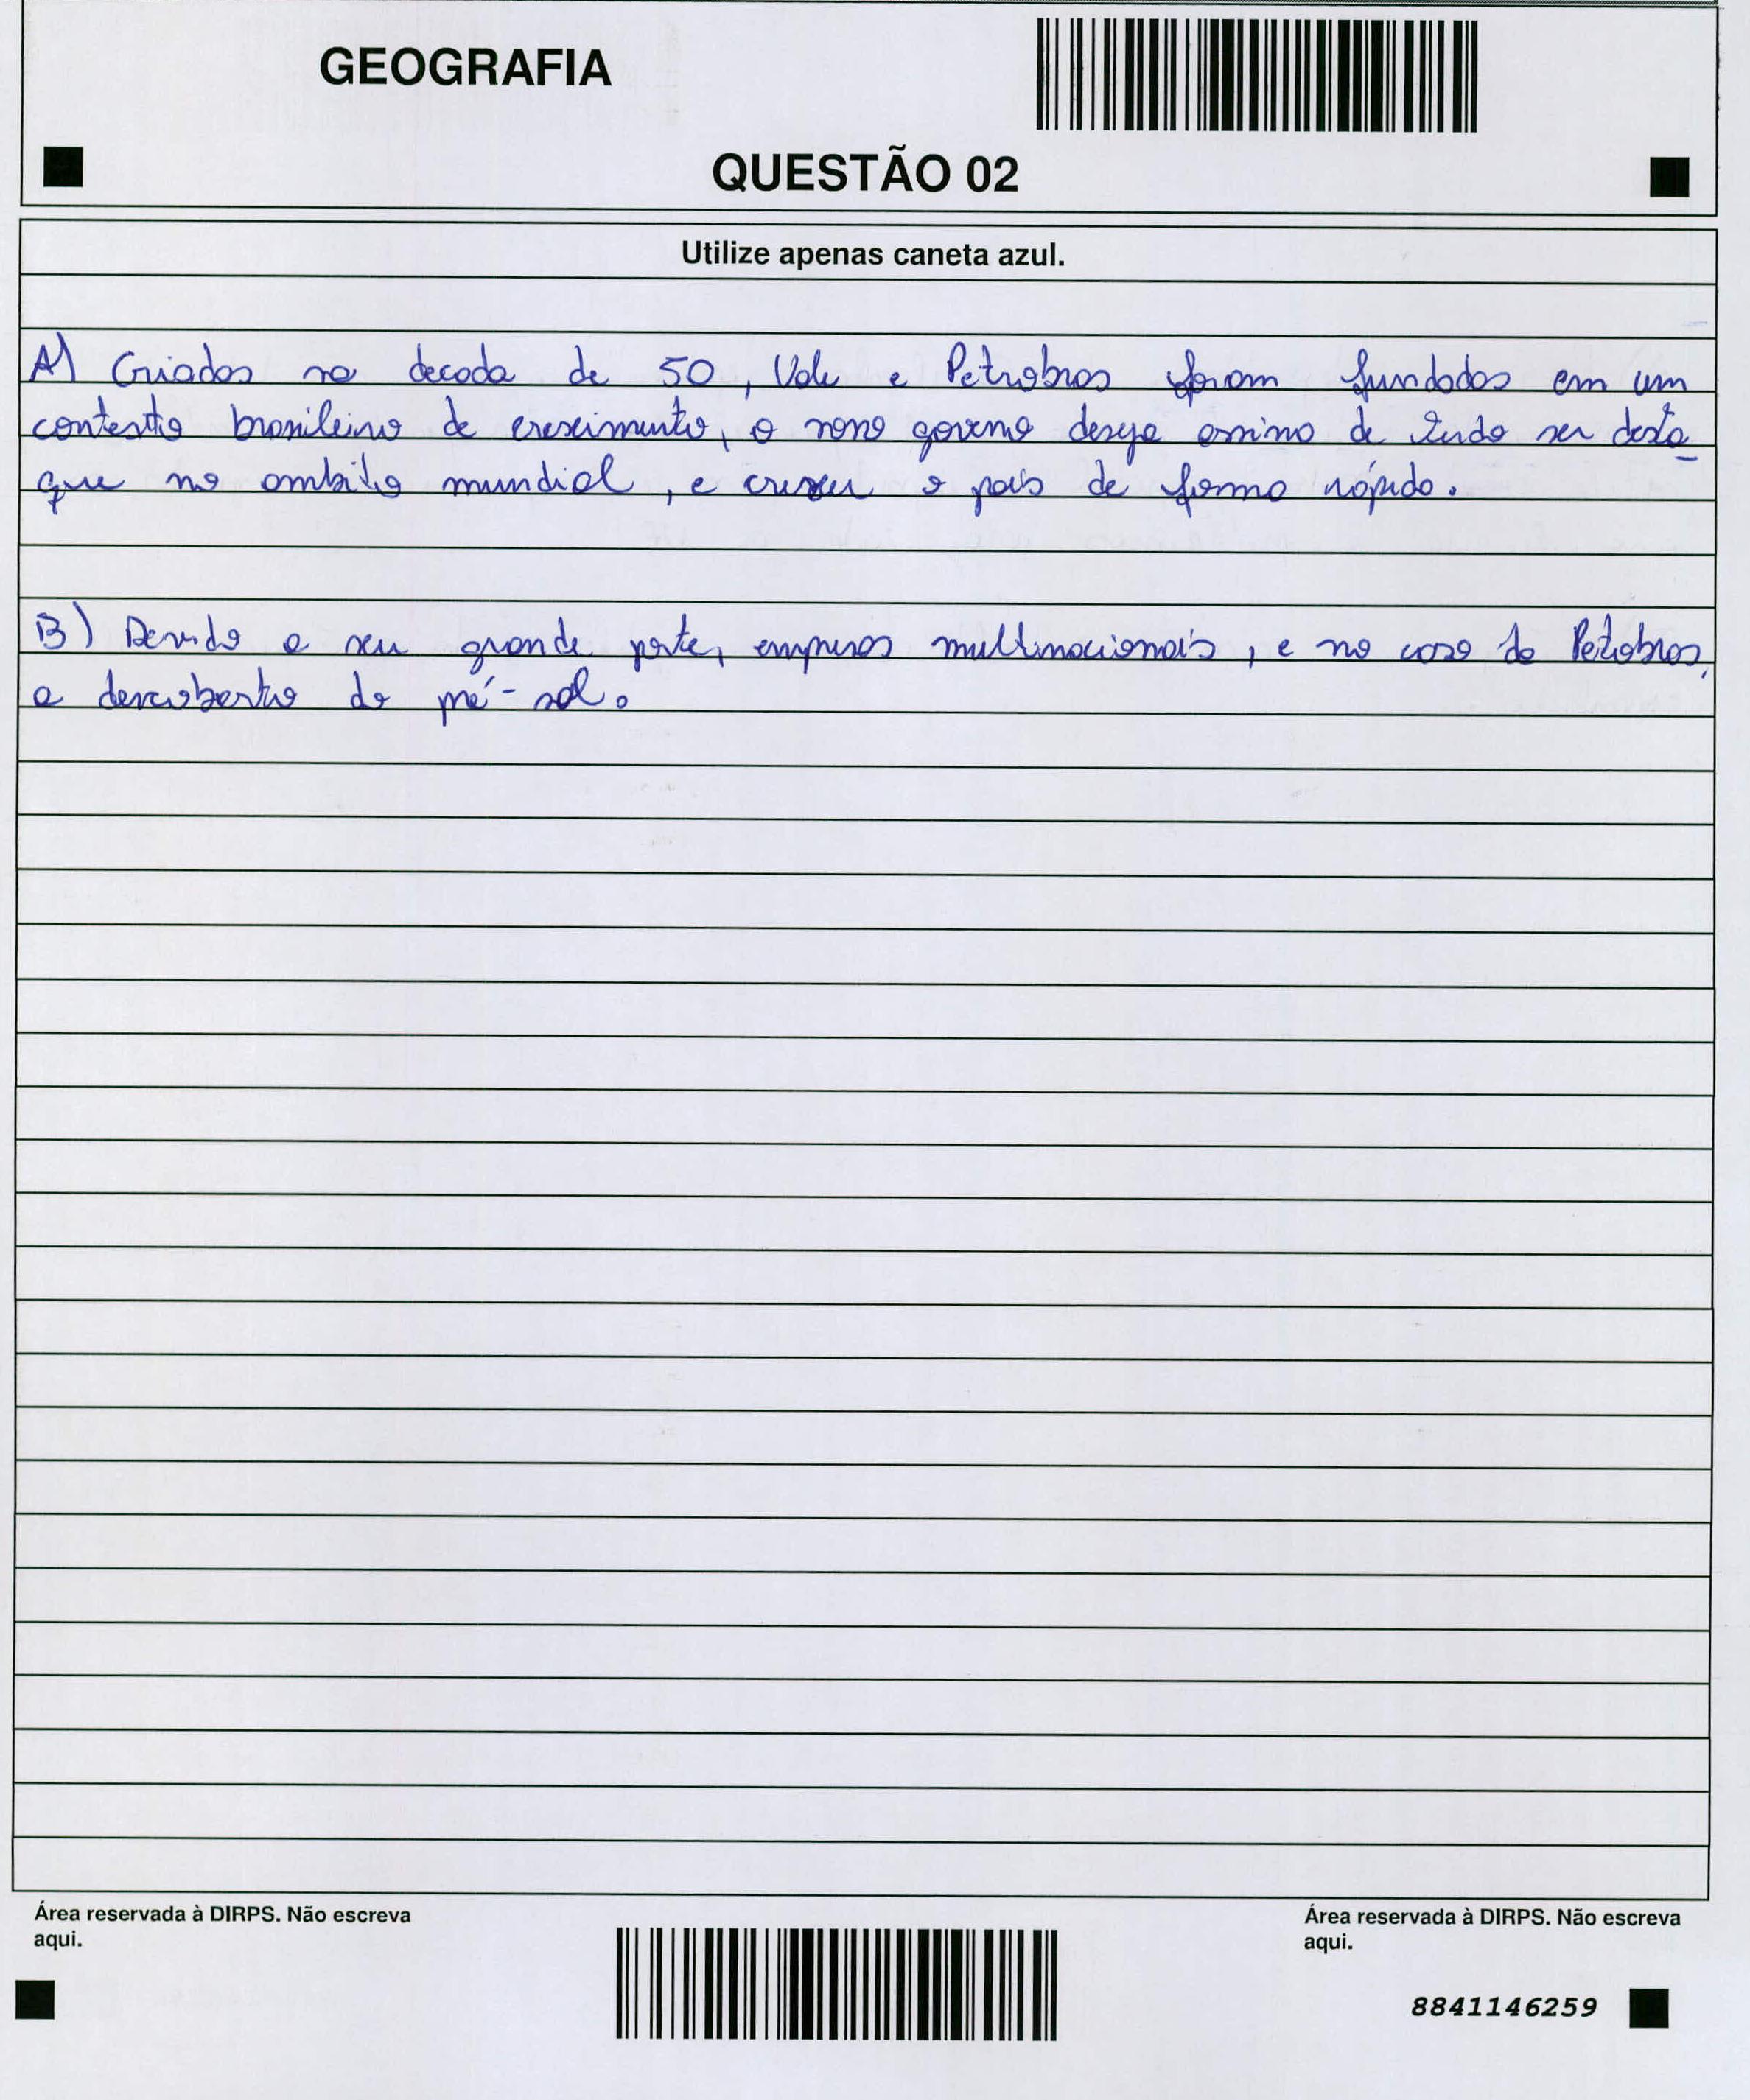 GEOGRAFIA
QUESTÃO 02
Utilize apenas caneta azul.
A) Criados na decada de 50, Vale e Petrobras foram fundados em um
contexto brasileiro de crescimento, o novo governo deseja acima de tudo ser desta_
que no ambito mundial, e crescer o país de forma rápida.
B) Devido a seu grande porte, empresas multinacionais, e no caso da Petrobras,
a descoberta do pré-sal.
Área reservada à DIRPS. Não escreva
aqui.
Área reservada à DIRPS. Não escreva
aqui.
8841146259